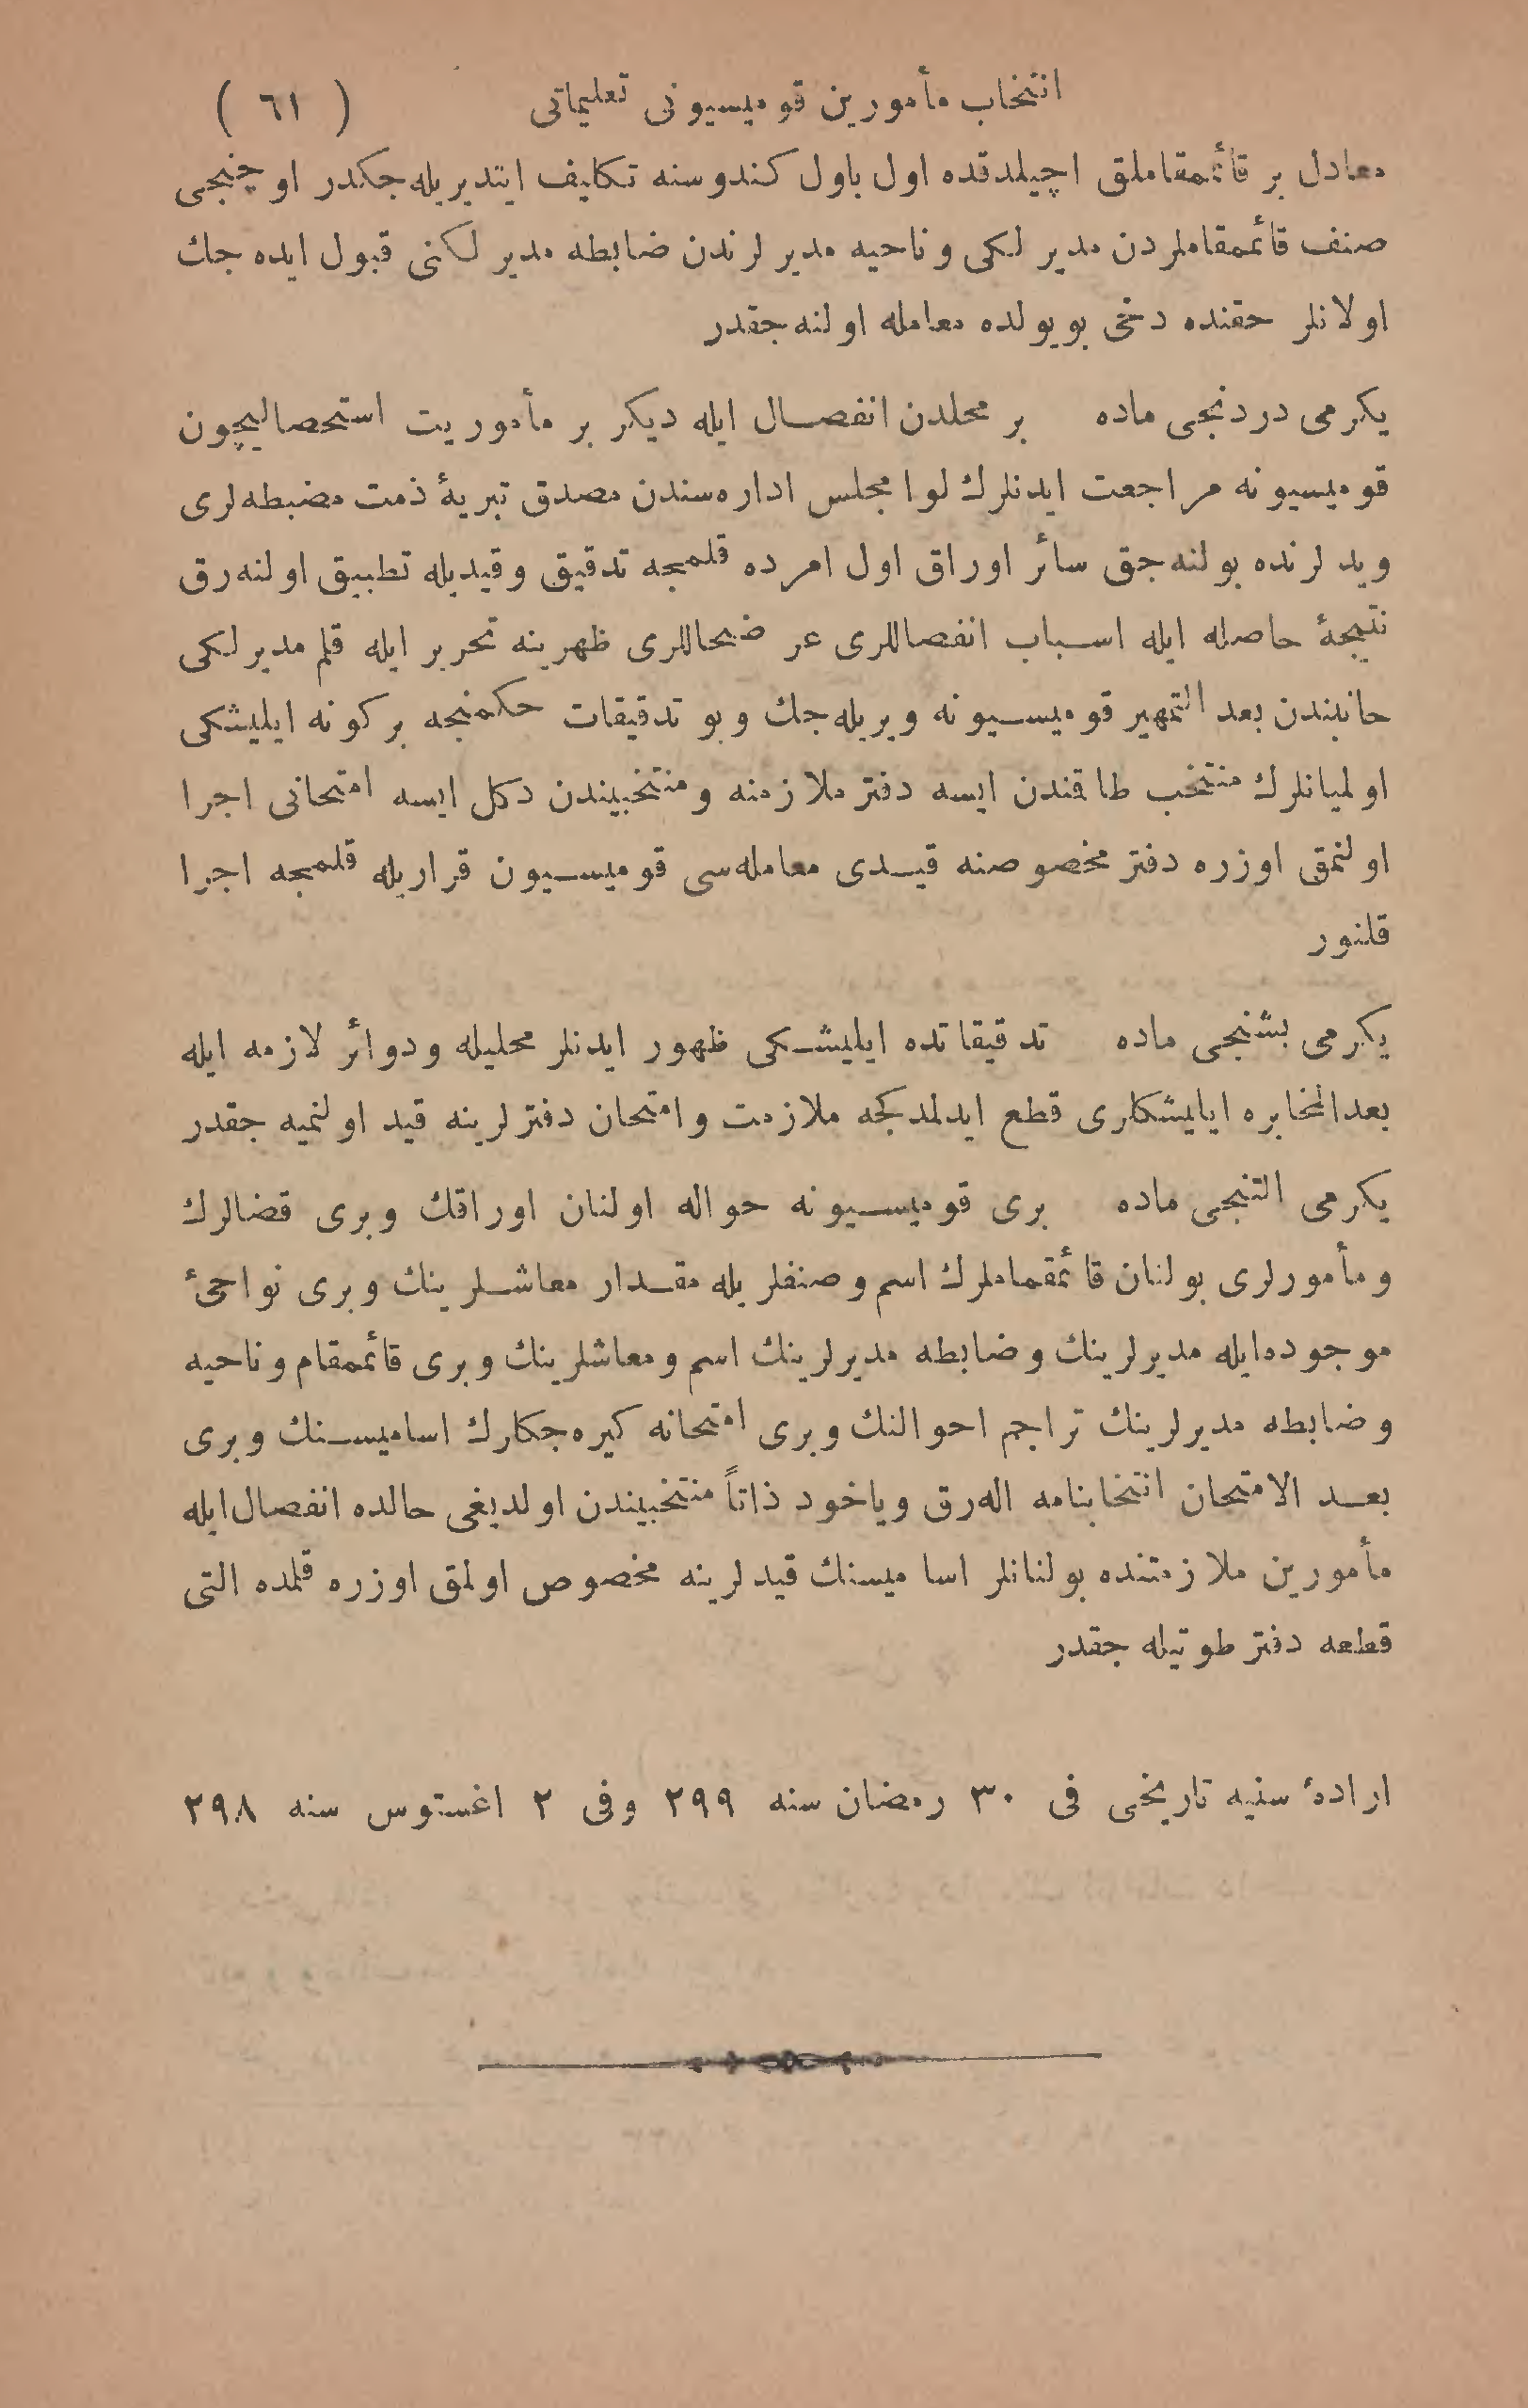 انتخاب مأمورین قومیسیونی تعلیماتی ( ٦١ )
معادل بر قائمقاملق اچیلدقده اول باول کندوسنه تکلیف ایتدیریله‌جکدر اوچنجی
صنف قائممقاملردن مدیرلکی و ناحیه مدیرلرندن ضابطه مدیرلکنی قبول ایده جك
اولانلر حقنده دخی بو یولده معامله اولنه‌جقدر
یکرمی دردنجی ماده بر محلدن انفصال ایله دیکر بر مأموریت استحصالیچون
قومیسیونه مراجعت ایدنلرك لوا مجلس اداره‌سندن مصدق تبریۀ ذمت مضبطه‌لری
وید لرنده بولنه‌جق سائر اوراق اول امرده قلمجه تدقیق وقیدیله تطبیق اولنه‌رق
نتیجۀ حاصله ایله اسباب انفصاللری عرضحاللری ظهرینه تحریر ایله قلم مدیرلکی
جانبندن بعد التمهیر قومیسیونه ویریله‌جك وبو تدقیقات حکمنجه بر کونه ایلیشکی
اولمیانلرك منتخب طاقندن ایسه دفتر ملازمنه ومنتخبیندن دکل ایسه امتحانی اجرا
اولنمق اوزره دفتر مخصوصنه قیدی معامله‌سی قومیسیون قراریله قلمجه اجرا
قلنور
یکرمی بشنجی ماده تدقیقاتده ایلیشکی ظهور ایدنلر محلیله ودوائر لازمه ایله
بعدالمخابره ایلیشکلری قطع ایدلمدکجه ملازمت وامتحان دفترلرینه قید اولنمیه جقدر
یکرمی التنجی ماده بری قومیسیونه حواله اولنان اوراقك وبری قضالرك
ومأمورلری بولنان قائمقماملرك اسم وصنفلریله مقدار معاشلرینك وبری نواحیٔ
موجوده‌ایله مدیرلرینك وضابطه مدیرلرینك اسم ومعاشلرینك وبری قائممقام وناحیه
وضابطه مدیرلرینك تراجم احوالنك وبری امتحانه کیره‌جکلرك اسامیسنك وبری
بعد الامتحان انتخابنامه اله‌رق ویاخود ذاتاً منتخبیندن اولدیغی حالده انفصال‌ایله
مأمورین ملازمتنده بولنانلر اسامیسنك قیدلرینه مخصوص اولمق اوزره قلمده التی
قطعه دفتر طوتیله جقدر
ارادۀ سنیه تاریخی فی ٣٠ رمضان سنه ٢٩٩ وفی ٢ اغستوس سنه ٢٩٨